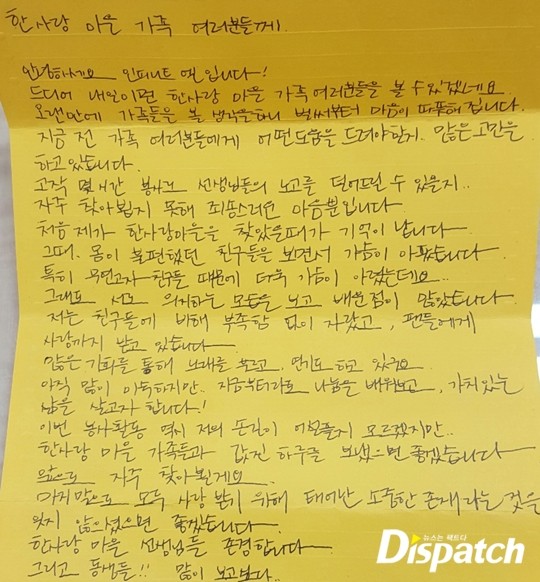 한사랑 마을 가족 여러분들께.
안녕하세요 인피니트 엘입니다!
드디어 내일이면 한사랑 마을 가족여러분들을 볼 수 있겠네요
오랜만에 가족들을 볼 생각을하니 벌써부터 마음이 따뜻해 집니다.
지금 전 가족 여러분들에게 어떤도움을 드려야할지. 많은 고민을
하고있습니다.
고작 몇시간 봉사로 선생님들의 노고를 덜어드릴 수 있을지..
자주 찾아뵙지 못해 죄송스러운 마음뿐입니다
처음 제가 한사랑마을을 찾았을때가 기억이 납니다.
그때. 몸이 불편했던 친구들을 보면서 가슴이 아팠습니다
특히 무연고자 친구들 때문에 더욱 가슴이 아렸는데요..
그래도 서로 의지하는 모습을 보고 배운점이 많았습니다
저는 친구들에 비해 부족함 없이 자랐고, 팬들에게
사랑까지 받고 있습니다.
많은 기회를 통해 노래를 부르고, 연기도 하고 있구요
아직 많이 미숙하지만. 지금부터라도 나눔을 배워보고, 가치있는
삶을 살고자 합니다!
이번 봉사활동 역시 저의 손길이 어설플지 모르겠지만..
한사랑 마을 가족들과 값진 하루를 보냈으면 좋겠습니다
앞으로 자주 찾아뵐게요
마지막으로 모두 사랑 받기 위해 태어난 소중한 존재라는 것을
잊지 않으셨으면 좋겠습니다.
한사랑 마을 선생님들 존경합니다.
그리고 동생들!! 많이 보고싶다..
뉴스는 팩트다
Dispatch